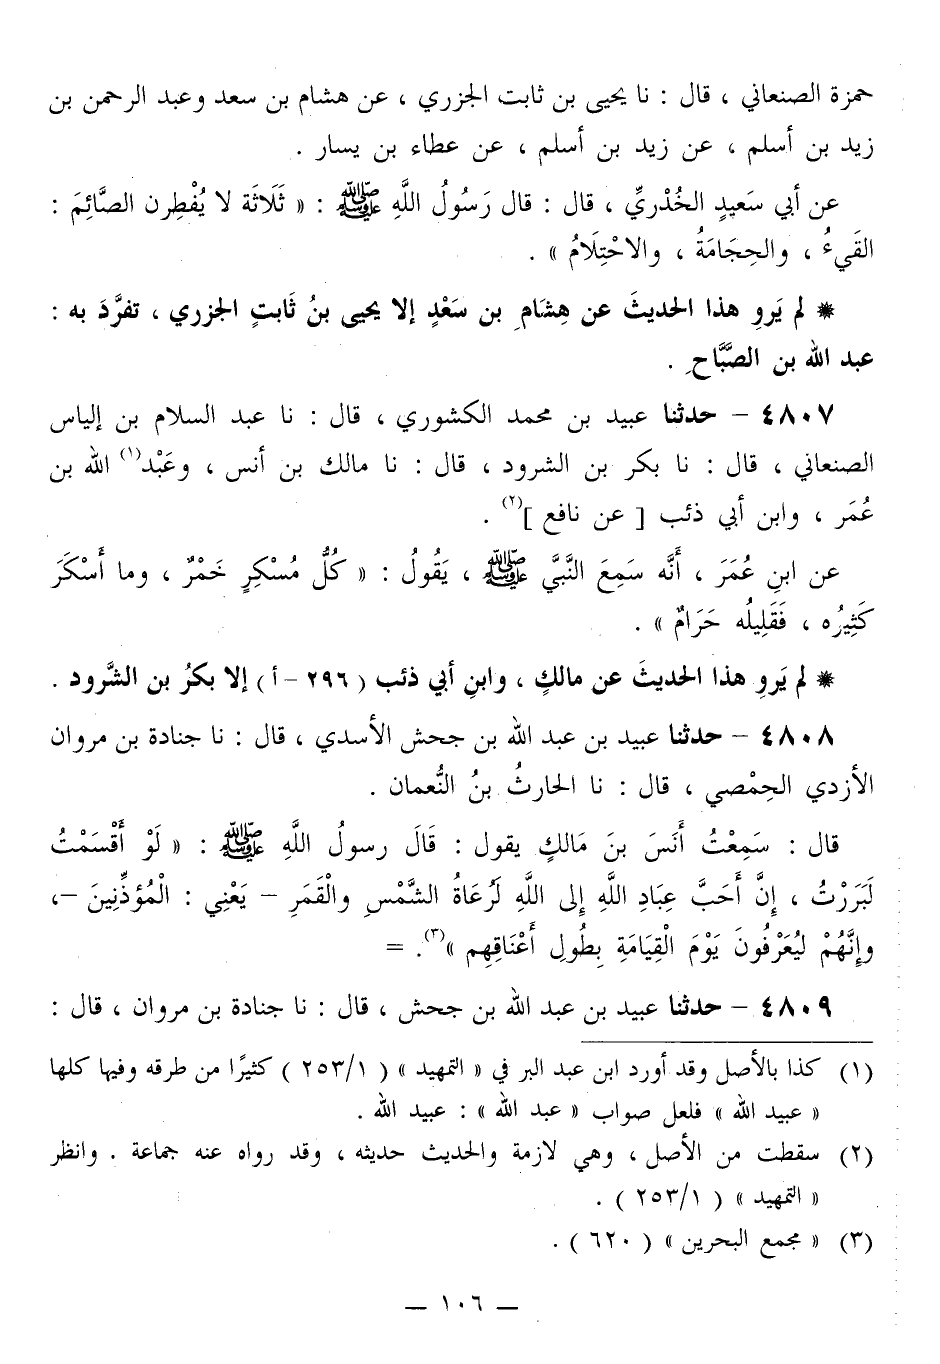 حمزة الصنعاني ، قال : نا يحيى بن ثابت الجزري ، عن هشام بن سعد وعبد الرحمن بن
زيد بن أسلم ، عن زيد بن أسلم ، عن عطاء بن يسار .
عن أبي سَعيدٍ الخُدْريِّ ، قال : قال رَسُولُ اللَّهِ ﷺ : « ثَلَاثَة لا يُفْطِرن الصَّائِمَ :
القَيءُ ، والحِجَامَةُ ، والاحْتِلَامُ » .
* لم يَروِ هذا الحديثَ عن هِشَامِ بن سَعْدٍ إلا يحيى بنُ ثَابتٍ الجزري ، تفرَّدَ به :
عبد الله بن الصَّبَّاحِ .
٤٨٠٧ – حدثنا عبيد بن محمد الكشوري ، قال : نا عبد السلام بن إلياس
الصنعاني ، قال : نا بكر بن الشرود ، قال : نا مالك بن أنس ، وعَبْد(١) الله بن
عُمَر ، وابن أبي ذئب [ عن نافع ](٢) .
عن ابنِ عُمَرَ ، أَنَّه سَمِعَ النَّبيَّ ﷺ ، يَقُولُ : « كُلُّ مُسْكِرٍ خَمْرٌ ، وما أَسْكَرَ
كَثِيرُه ، فَقَلِيلُه حَرَامٌ » .
* لم يَروِ هذا الحديثَ عن مالكٍ ، وابنِ أبي ذئب ( ٢٩٦ – أ ) إلا بكرُ بن الشَّرود .
٤٨٠٨ – حدثنا عبيد بن عبد الله بن جحش الأسدي ، قال : نا جنادة بن مروان
الأزدي الحِمْصي ، قال : نا الحارثُ بنُ النُّعمان .
قال : سَمِعْتُ أَنَسَ بنَ مَالكٍ يقول : قَالَ رسولُ اللَّهِ ﷺ : « لَوْ أَقْسَمْتُ
لَبَرَرْتُ ، إِنَّ أَحَبَّ عِبَادِ اللَّهِ إِلى اللَّهِ لَرُعَاةُ الشَّمْسِ والْقَمَرِ – يَعْنِي : الْمُؤذِّنِينَ –،
وإِنَّهُمْ ليُعَرْفُونَ يَوْمَ الْقِيَامَةِ بِطُولِ أَعْنَاقِهِم »(٣). =
٤٨٠٩ – حدثنا عبيد بن عبد الله بن جحش ، قال : نا جنادة بن مروان ، قال :
(١) كذا بالأصل وقد أورد ابن عبد البر في « التمهيد » ( ٢٥٣/١ ) كثيرًا من طرقه وفيها كلها
« عبيد الله » فلعل صواب « عبد الله » : عبيد الله .
(٢) سقطت من الأصل ، وهي لازمة والحديث حديثه ، وقد رواه عنه جماعة . وانظر
« التمهيد » ( ٢٥٣/١ ) .
(٣) « مجمع البحرين » ( ٦٢٠ ) .
— ١٠٦ —